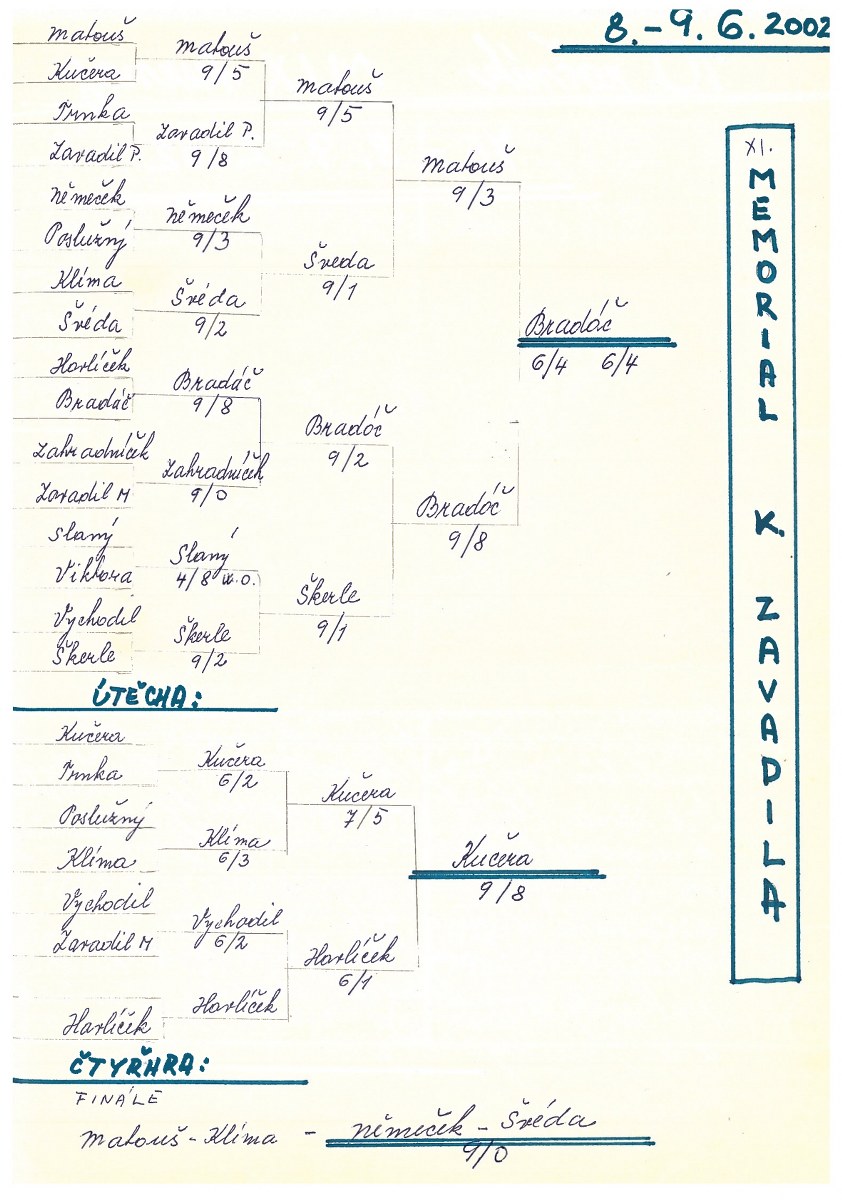 8.-9.6.2002
XI. MEMORIAL K. ZAVADILA
Matouš
Kučera
Trnka
Zavadil P.
Němeček
Poslužný
Klíma
Švéda
Havlíček
Bradáč
Zahradníček
Zavadil M
Slaný
Viktora
Vychodil
Škerle
Matouš
9/5
Zavadil P.
9/8
Němeček
9/3
Švéda
9/2
Bradáč
9/8
Zahradníček
9/0
Slaný
4/8 w.o.
Škerle
9/2
Matouš
9/5
Švéda
9/1
Bradáč
9/2
Škerle
9/1
Matouš
9/3
Bradáč
9/8
Bradáč
6/4 6/4
ÚTĚCHA:
Kučera
Trnka
Poslužný
Klíma
Vychodil
Zavadil M
Havlíček
Kučera
6/2
Klíma
6/3
Vychodil
6/2
Havlíček
Kučera
7/5
Havlíček
6/1
Kučera
9/8
ČTYŘHRA:
FINÁLE
Matouš - Klíma - Němeček - Švéda
9/0